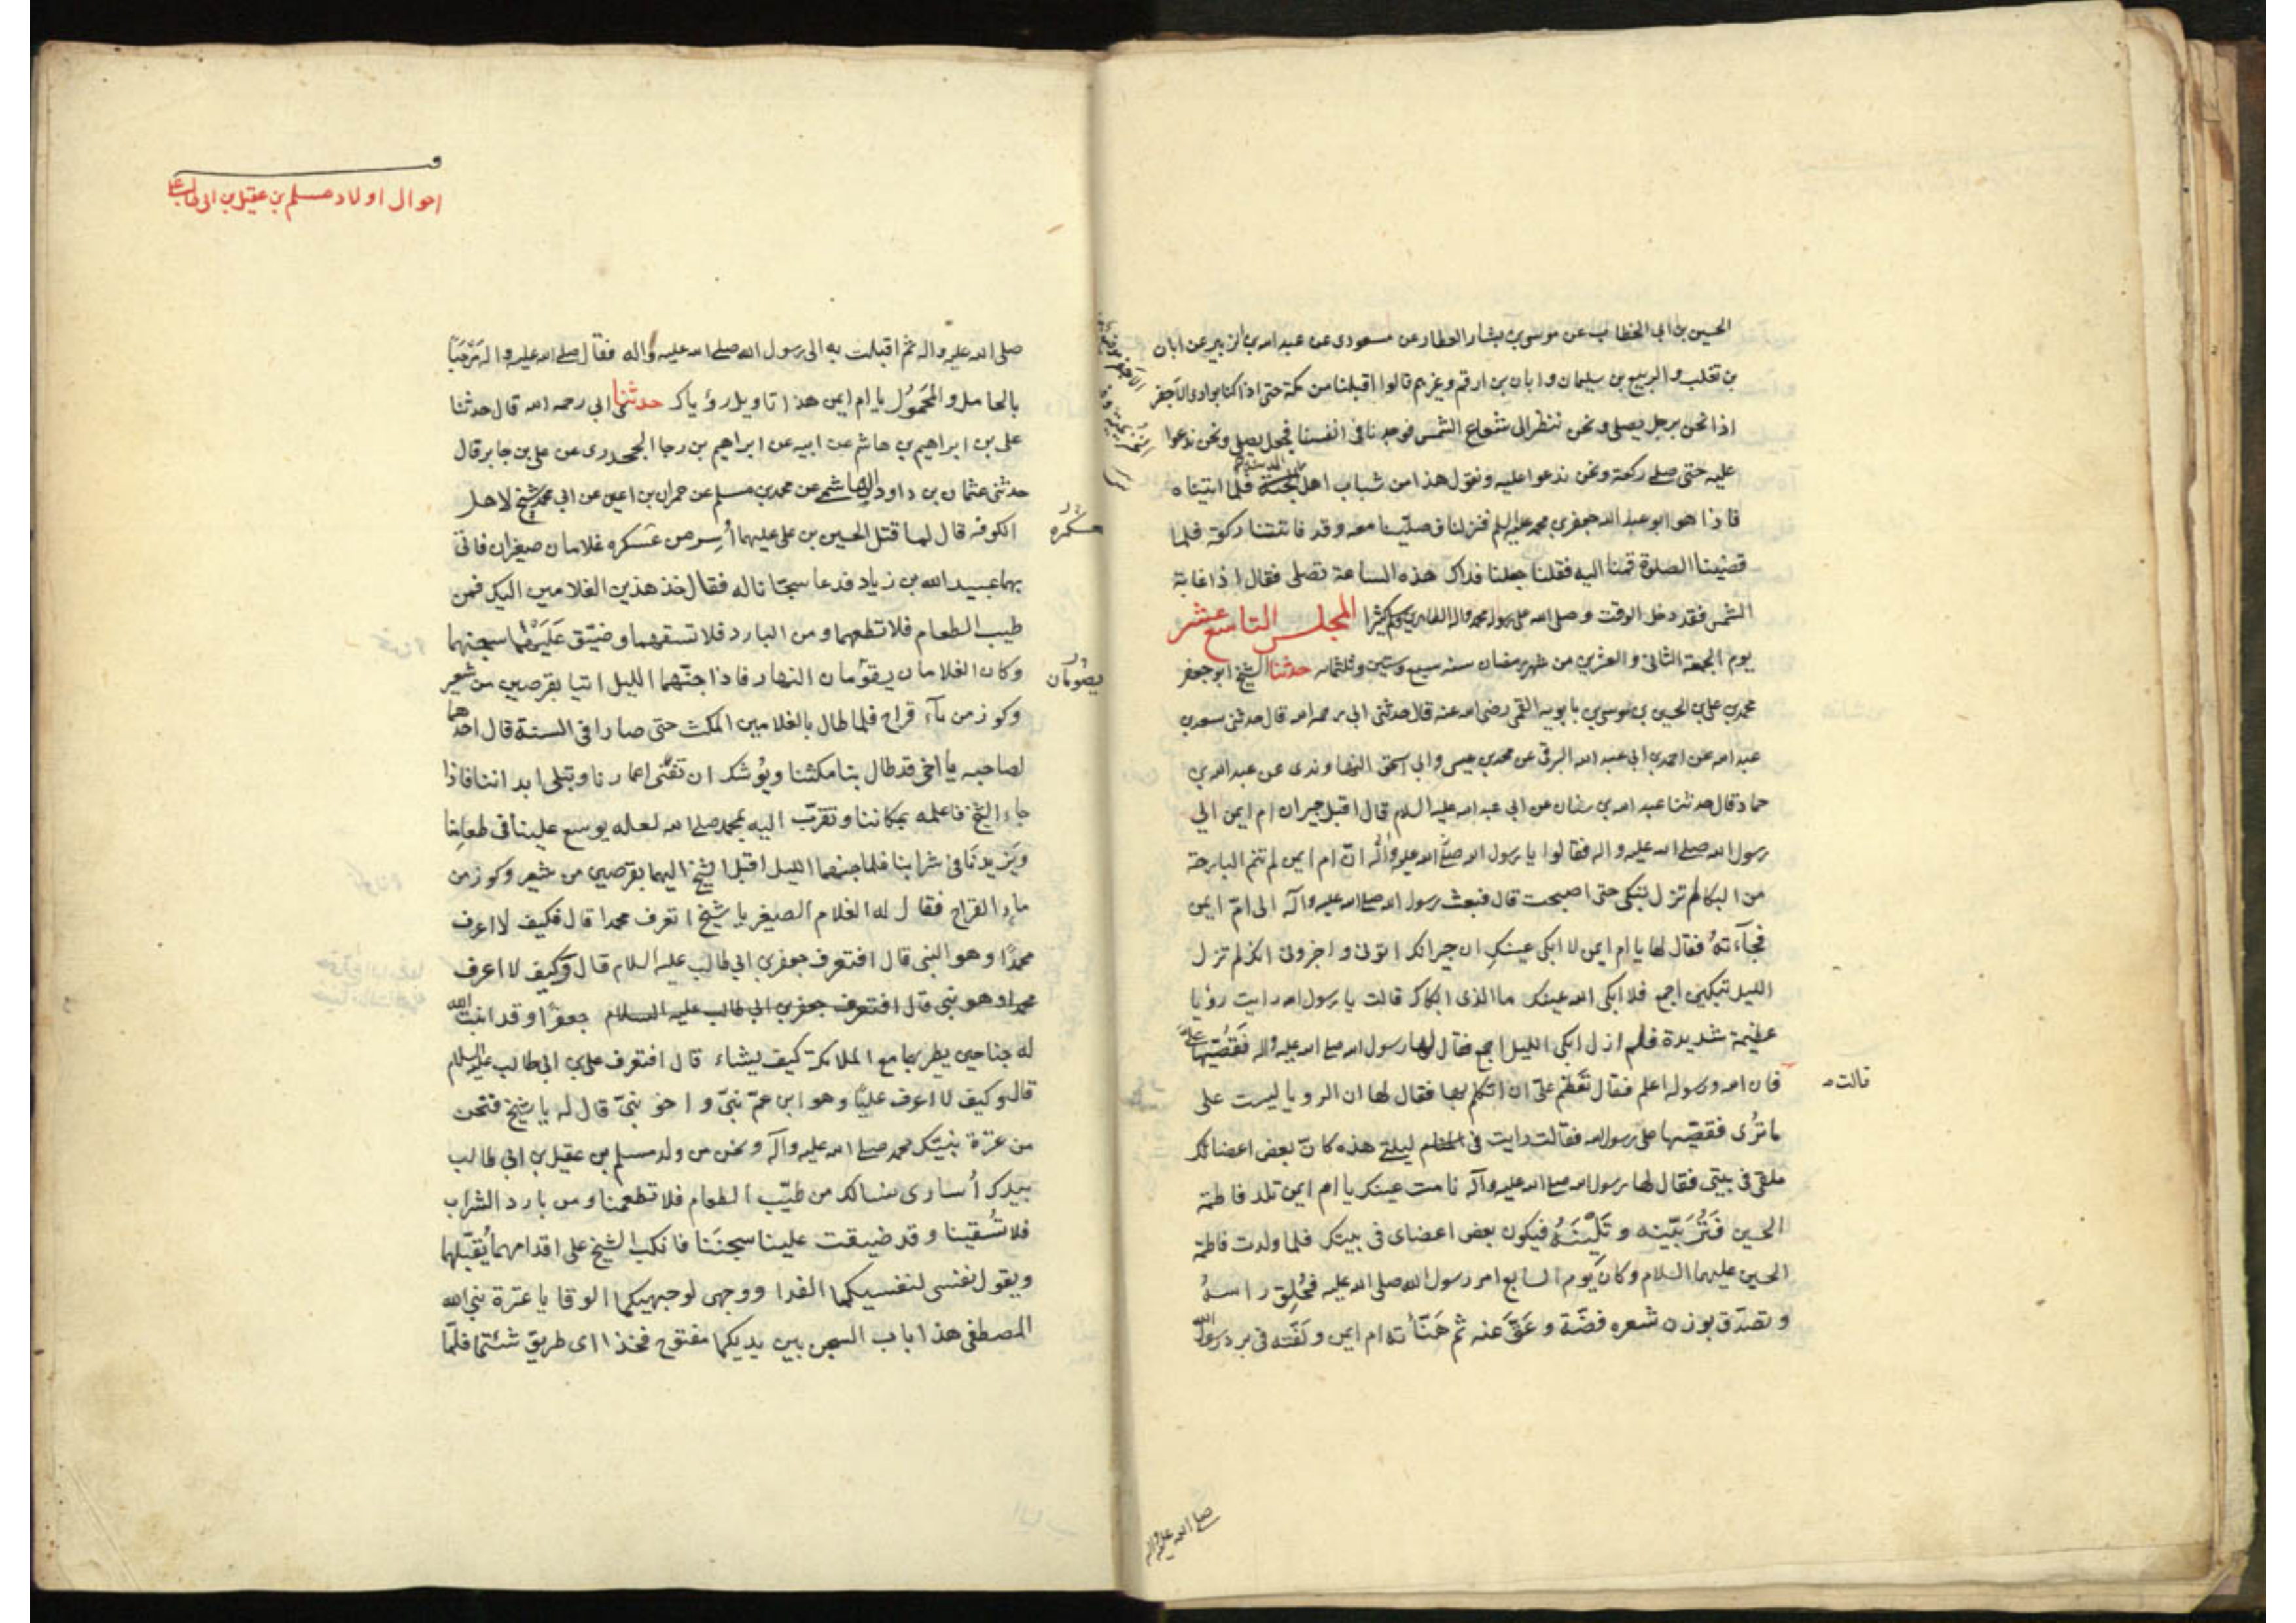 الحسين بن ابي الخطاب عن موسى بن بشار العطار عن مسعودى عن عبد الله بن الزبير عن ابان
بن تغلب و الربيع بن سليمان و ابان بن ارقم و غيرهم قالوا اقبلنا من مكة حتى اذا كنا بوادى الاجفر
اذا نحن برجل يصلى و نحن ننظر الى شعاع الشمس فوجدنا فى انفسنا فجعل يصلى و نحن ندعوا
عليه حتى صلى ركعة و نحن ندعوا عليه و نقول هذا من شباب اهل المدينة فلما اتيناه
فاذا هو ابو عبد الله جعفر بن محمد عليه السلم فنزلنا فصلّينا معه و قد فاتتنا ركعة فلما
قضينا الصلوة قمنا اليه فقلنا جعلنا فداك هذه الساعة تصلى فقال اذا غابة
الشمس فقد دخل الوقت و صلى الله على رسوله محمد و اله الطاهرين و سلم كثيرا المجلس التاسع عشر
يوم الجمعة الثانى و العشرين من شهر رمضان سنه سبع و ستين و ثلثمائه حدثنا الشيخ ابو جعفر
محمد بن على بن الحسين بن موسى بن بابويه القمى رضى الله عنه قال حدثنى ابى رحمه الله قال حدثنى سعد بن
عبد الله عن احمد بن ابى عبد الله البرقى عن محمد بن عيسى و ابى اسحق النهاوندى عن عبد الله بن
حماد قال حدثنا عبد الله بن سنان عن ابى عبد الله عليه السلام قال اقبل جيران ام ايمن الى
رسول الله صلى الله عليه و اله فقالوا يا رسول الله صلى الله عليه و اله انّ ام ايمن لم تنم البارحة
من البكا لم تزل تبكى حتى اصبحت قال فبعث رسول الله صلى الله عليه و آله الى امّ ايمن
فجآءته فقال لها يا ام ايمن لا ابكى عينك ان جيرانك اتونى و اخبرونى انك لم تزل
الليل تبكين اجمع فلا ابكى الله عينك ما الذى ابكاك قالت يا رسول الله رايت رؤيا
عظيمة شديدة فلم ازل ابكى الليل اجمع فقال لها رسول الله صلى الله عليه و اله فقصّيها
قالت
فان الله و رسوله اعلم فقال تعظم علىّ ان اتكلم بها فقال لها ان الرويا ليست على
ما ترى فقصّيها على رسول الله فقالت رايت فى ليلتى هذه كانّ بعض اعضائك
ملقى فى بيتى فقال لها رسول الله صلى الله عليه و آله نامت عينك يا ام ايمن تلد فاطمة
الحسين فتربّينه و تلينه فيكون بعض اعضاى فى بيتك فلما ولدت فاطمة
الحسين عليهما السلام و كان يوم السابع امر رسول الله صلى الله عليه فحلق راسه
و تصدّق بوزن شعره فضّة و عقّ عنه ثم هيّأته ام ايمن و لفّته فى برد رسول الله
صلى الله عليه و اله
احوال اولاد مسلم بن عقيل بن ابى طالب
صلى الله عليه و اله ثم اقبلت به الى رسول الله صلى الله عليه و اله فقال صلى الله عليه و اله مرحبًا
بالحامل و المحمول يا ام ايمن هذا تاويل رؤياك حدثنا ابى رحمه الله قال حدثنا
على بن ابراهيم بن هاشم عن ابيه عن ابراهيم بن رجا الجحدرى عن على بن جابر قال
حدثنى عثمان بن داود الهاشمى عن محمد بن مسلم عن حمران بن اعين عن ابى محمد شيخ لاهل
عسكره
الكوفه قال لما قتل الحسين بن على عليهما أُسر من عسكره غلامان صغيران فاتى
بهما عبيد الله بن زياد فدعا سجّانا له فقال خذ هذين الغلامين اليك فمن
طيب الطعام فلا تطعهما و من البارد فلا تسقهما و ضيّق عليهما سجنهما
يصومان
و كان الغلامان يقومان النهار فاذا جنّهما الليل اتيا بقرصين من شعير
و كوز من مآء قراح فلما طال بالغلامين المكث حتى صارا فى السنة قال احدهما
لصاحبه يا اخى قد طال بنا مكثنا و يوشك ان تفنى اعمارنا و تبلى ابداننا فاذا
جاء الشيخ فاعلمه بمكاننا و تقرّب اليه بمحمد صلى الله لعله يوسع علينا فى طعامنا
و يزيدنا فى شرابنا فلما جنهما الليل اقبل الشيخ اليهما بقرصين من شعير و كوز من
ماء القراح فقال له الغلام الصغير يا شيخ اتعرف محمدا قال فكيف لا اعرف
محمدًا و هو النبى قال افتعرف جعفر بن ابى طالب عليه السلام قال و كيف لا اعرف
محمدا و هو نبى قال افتعرف جعفر بن ابى طالب عليه السلام جعفرًا و قد انبت الله
له جناحين يطير بهما مع الملائكة كيف يشاء قال افتعرف على بن ابى طالب عليه السلام
قال و كيف لا اعرف عليًا و هو ابن عمّ نبىّ و اخو نبىّ قال له يا شيخ فنحن
من عترة نبيّك محمد صلى الله عليه و آله و نحن من ولد مسلم بن عقيل بن ابى طالب
بيدك أسارى نسالك من طيّب الطعام فلا تطعمنا و من بارد الشراب
فلا تسقينا و قد ضيقت علينا سجننا فانكب الشيخ على اقدامهما يقبّلهما
و يقول نفسى لنفسيكما الفدا و وجهى لوجهيكما الوقا يا عترة نبى الله
المصطفى هذا باب السجن بين يديكما مفتوح فخذا اى طريق شئتما فلمّا